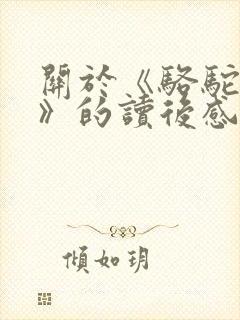 關於《駱駝
》的讀後感
傾如玥